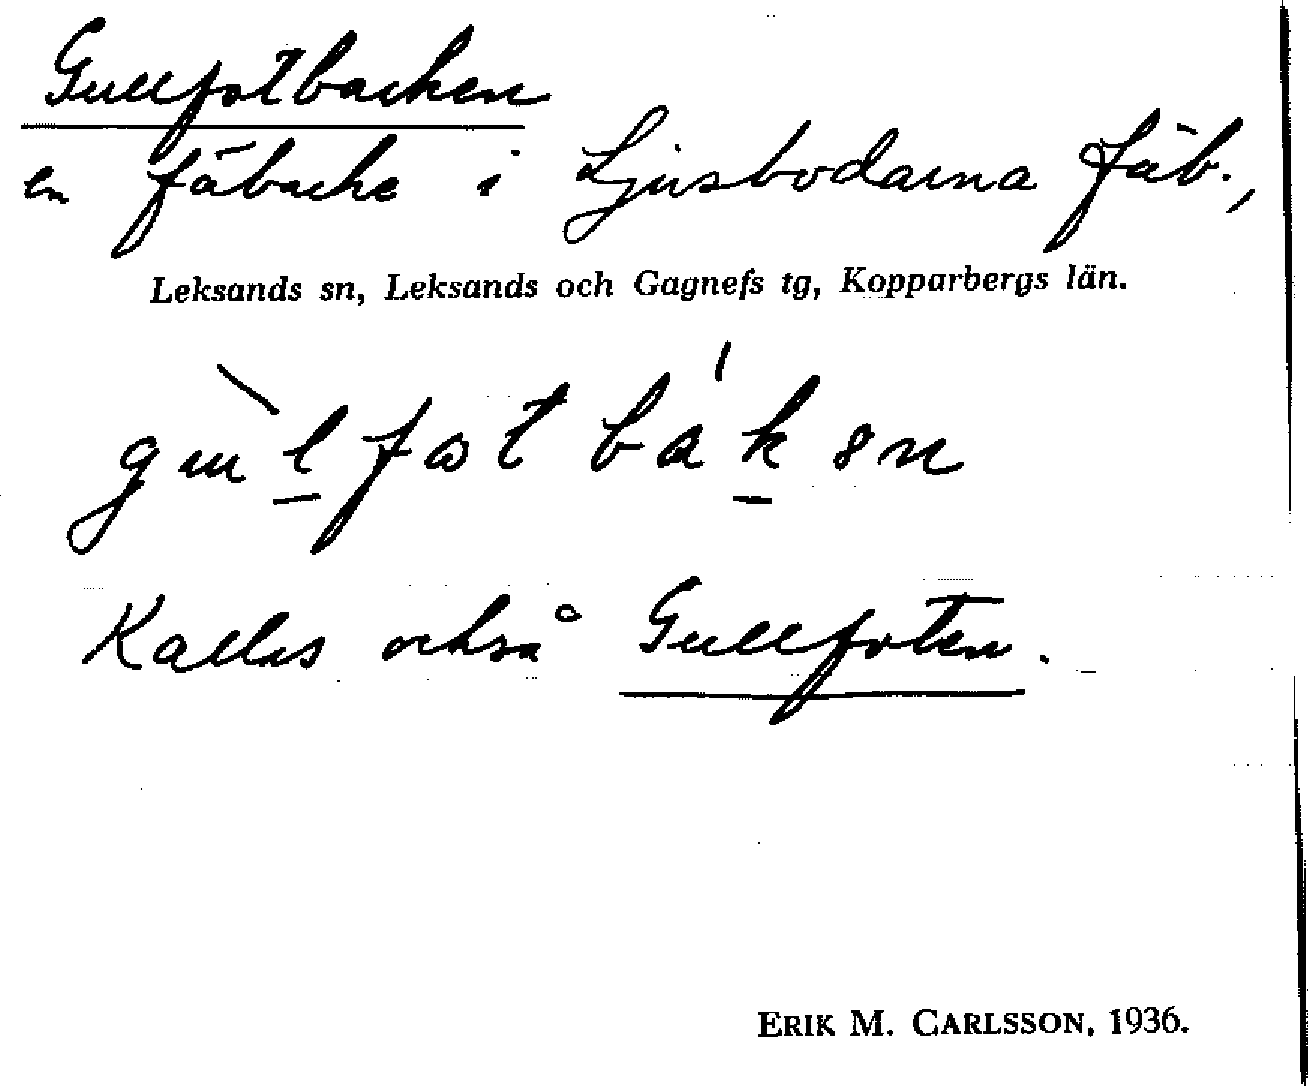 Gullfotbacken
en fäbacke i Ljusbodarna fäb.,
Leksands sn, Leksands och Gagnefs tg, Kopparbergs län.
Kallas också Gullfoten.
ERIK M. CARLSSON, 1936.